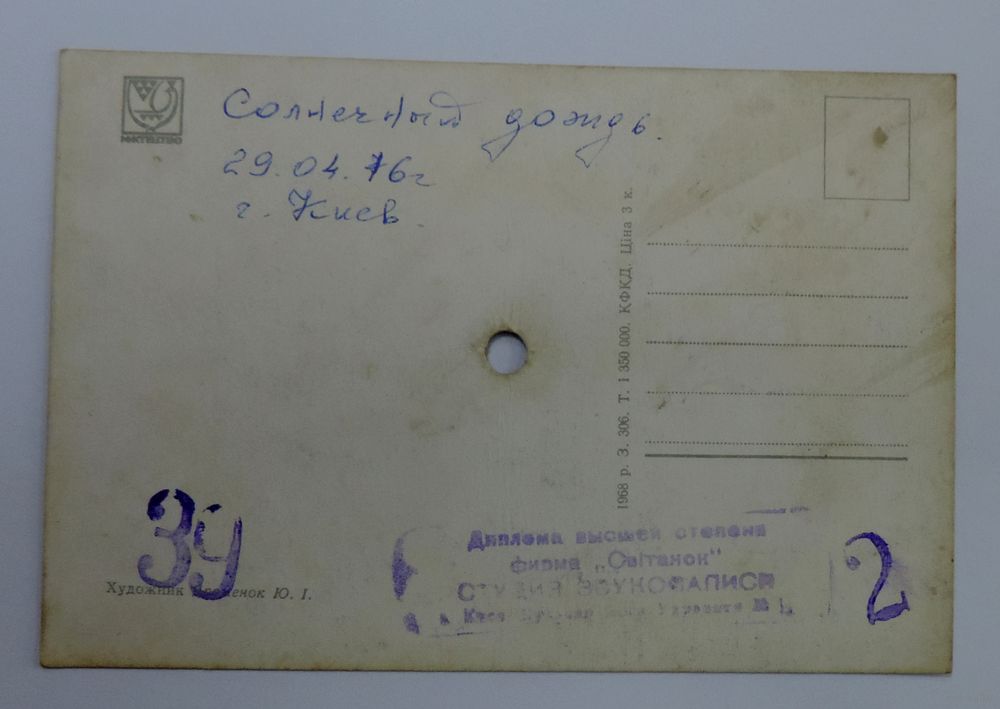 МИСТЕЦТВО
Солнечный дождь.
29.04.76г
г. Киев.
1968 р. З. 306. Т. 1 350 000. КФКД. Ціна 3 к.
39
Художник Ю. І.
Диплома высшей степени
фирма „Світанок"
СТУДИЯ ЗВУКОЗАПИСИ
2